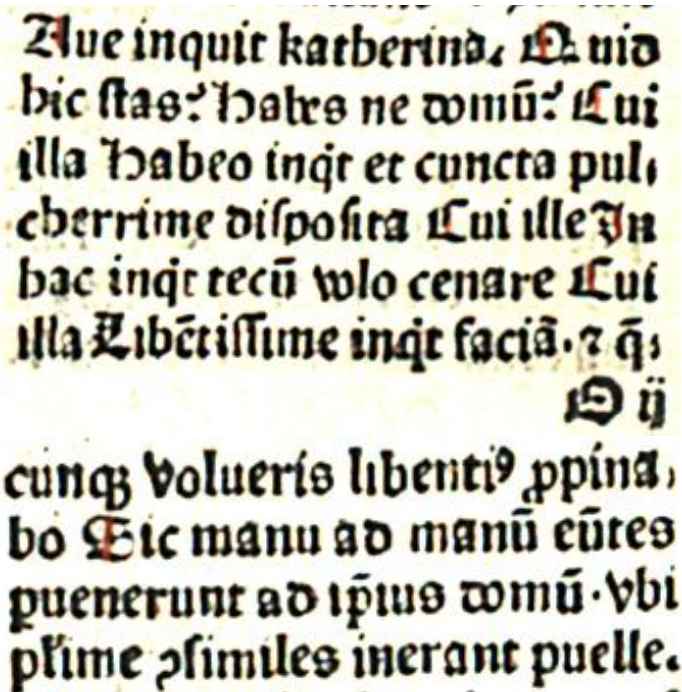 Aue inquit katherina. Quid
hic ſtas? Habes ne domū? Cui
illa Habeo inqͥt et cuncta pul⸗
cherrime diſpoſita Cui ille In
hac inqͥt tecū volo cenare Cui
illa Libētiſſime inqͥt faciā. ⁊ q̄⸗
O ij
cunqꝫ volueris libentiꝰ ꝓpina⸗
bo Sic manu ad manū eūtes
ꝑuenerunt ad ip̄ius domū. vbi
pl̓ime ꝯſimiles inerant puelle.